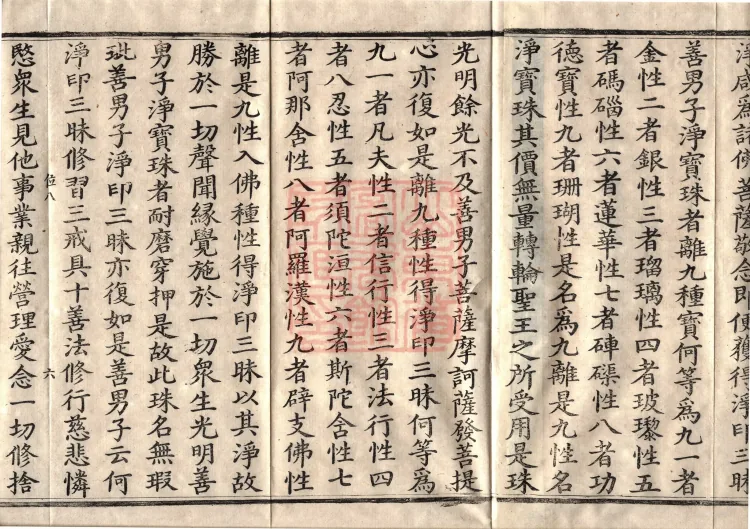 淨咸為諸佛菩薩敬念即便獲得淨印三昧
善男子淨寶珠者離九種寶何等為九一者
金性二者銀性三者瑠璃性四者玻瓈性五
者碼碯性六者蓮華性七者硨磲性八者功
德寶性九者珊瑚性是名為九離是九性名
淨寶珠其價無量轉輪聖王之所受用是珠
光明餘光不及善男子菩薩摩訶薩發菩提
心亦復如是離九種性得淨印三昧何等為
九一者凡夫性二者信行性三者法行性四
者八忍性五者須陀洹性六者斯陀含性七
者阿那含性八者阿羅漢性九者辟支佛性
離是九性入佛種性得淨印三昧以其淨故
勝於一切聲聞緣覺施於一切眾生光明善
男子淨寶珠者耐磨穿押是故此珠名無瑕
玼善男子淨印三昧亦復如是善男子云何
淨印三昧修習三戒具十善法修行慈悲憐
位八 六
愍眾生見他事業親往營理愛念一切修捨